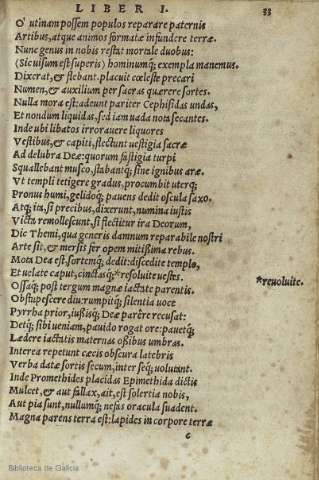 LIBER I. 33
O' utinam possem populos reparare paternis
Artibus, atque animos formatæ infundere terræ.
Nunc genus in nobis restat mortale duobus:
(Sic uisum est superis) hominumq; exempla manemus.
Dixerat, & flebant. placuit cœleste precari
Numen, & auxilium per sacras quærere sortes.
Nulla mora est: adeunt pariter Cephisidas undas,
Et nondum liquidas, sed iam uada nota secantes.
Inde ubi libatos irrorauere liquores
Vestibus, & capiti, flectunt uestigia sacræ
Ad delubra Deæ: quorum fastigia turpi
Squallebant musco, stabantq; sine ignibus aræ.
Vt templi tetigere gradus, procumbit uterq;
Pronus humi, gelidoq; pauens dedit oscula saxo.
Atq; ita, si precibus, dixerunt, numina iustis
Victa remollescunt, si flectitur ira Deorum,
Dic Themi, qua generis damnum reparabile nostri
Arte sit, & mersis fer opem mitissima rebus.
Mota Dea est, sortemq; dedit: discedite templo,
Et uelate caput, cinctasq; *resoluite uestes. *reuoluite.
Ossaq; post tergum magnæ iactate parentis.
Obstupescere diu: rumpitq; silentia uoce
Pyrrha prior, iussisq; Deæ parêre recusat:
Detq; sibi ueniam, pauido rogat ore: pauetq;
Lædere iactatis maternas ossibus umbras.
Interea repetunt cæcis obscura latebris
Verba datæ sortis secum, inter seq; uolutant.
Inde Promethides placidas Epimethida dictis
Mulcet, & aut fallax, ait, est solertia nobis,
Aut pia sunt, nullumq; nefas oracula suadent.
Magna parens terra est: lapides in corpore terræ
c
Biblioteca de Galicia